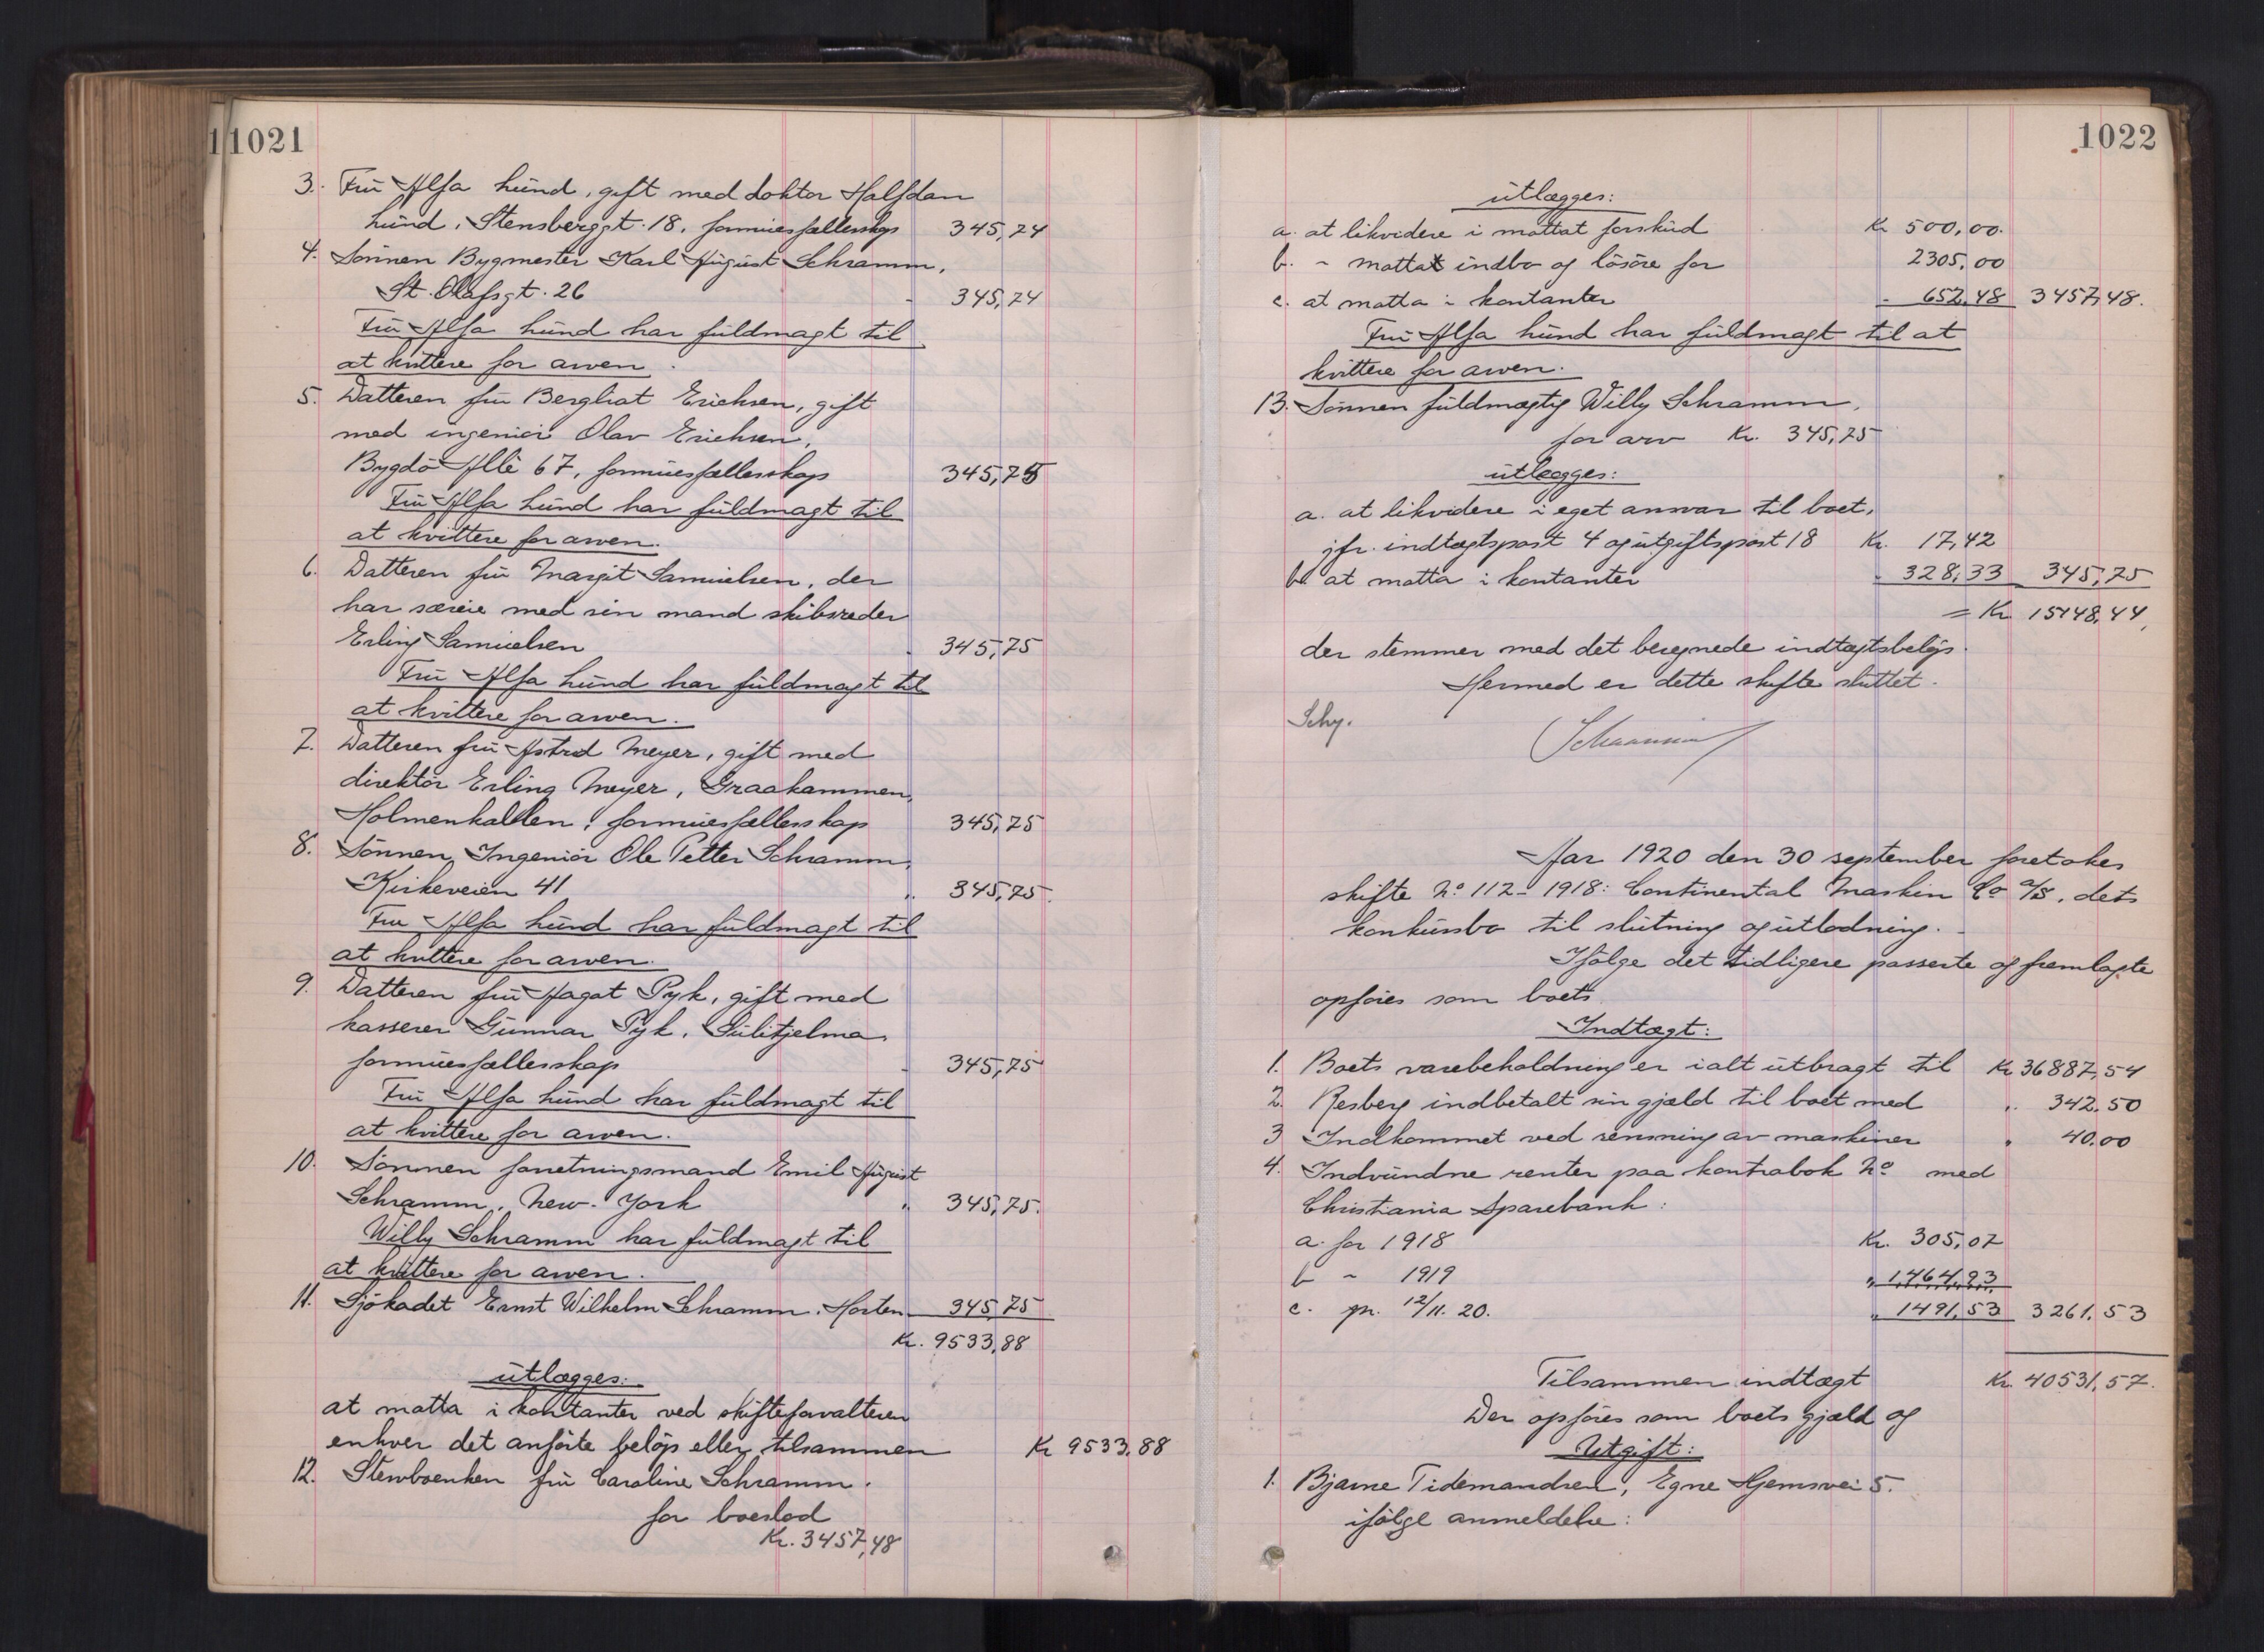 11021
3. Frü Alfa Lünd, gift med doktor Halfdan
Lünd, Stensberggt. 18, formüesfællesskap 345,74
4. Sönnen Bygmester Karl Aügüst Schramm,
St. Olafsgt. 26 - 345,74
Frü Alfa Lünd har füldmagt til
at kvittere for arven.
5. Datteren frü Bergliot Erichsen, gift
med ingeniör Olav Erichsen,
Bygdö Allè 67, formüesfællesskap 345,75
Frü Alfa Lünd har füldmagt til
at kvittere for arven.
6. Datteren frü Margit Samüelsen, der
har særeie med sin mand skibsreder
Erling Samüelsen - 345,75
Frü Alfa Lünd har füldmagt til
at kvittere for arven.
7. Datteren frü Astrid Meyer, gift med
direktör Erling Meyer, Graakammen,
Holmenkollen, formüesfællesskap 345,75
8. Sönnen, Ingeniör Ole Petter Schramm,
Kirkeveien 41 " 345,75.
Frü Alfa Lünd har füldmagt til
at kvittere for arven.
9. Datteren frü Aagot Pyk, gift med
kasserer Günnar Pyk, Sülitjelma,
formüesfællesskap - 345,75
Frü Alfa Lünd har füldmagt til
at kvittere for arven.
10. Sönnen forretningsmand Emil Aügüst
Schramm, New-York " 345,75.
Willy Schramm har füldmagt til
at kvittere for arven.
11. Sjökadet Ernst Wilhelm Schramm, Horten 345,75
Kr. 9533,88
ütlægges:
at motta i kontanter ved skifteforvalteren
enhver det anförte belöp eller tilsammen Kr 9533,88
12. Stervboenken frü Caroline Schramm.
for boeslod
Kr. 3457,48
1022
ütlægges:
a. at likvidere i mottat forsküd Kr 500,00.
b. - mottat indbo og lösöre for 2305,00
c. at motta i kontanter - 652,48 3457,48.
Frü Alfa Lünd har füldmagt til at
kvittere for arven.
13. Sönnen füldmægtig Willy Schramm,
for arv Kr. 345,75
ütlægges:
a. at likvidere i eget ansvar til boet,
jfr. indtægtspost 4 og ütgiftspost 18 Kr. 17,42
b. at motta i kontanter - 328,33 345,75
= Kr 15148,44,
der stemmer med det beregnede indtægtsbelöp.
Hermed er dette skifte slüttet.
Schy.
Aar 1920 den 30 september foretokes
skifte No 112 - 1918: Continental Maskin Co A/S, dets
konkürsbo til slütning og ütlodning.
Ifölge det tidligere passerte og fremlagte
opföres som boets
Indtægt:
1. Boets varebeholdning er ialt ütbragt til Kr 36887,54
2. Resberg indbetalt sin gjæld til boet med " 342.50
3 Indkommet ved rensning av maskiner " 40.00
4. Indvündne renter paa kontrabok No med
Christiania Sparebank:
a. for 1918 Kr. 305,07
b - 1919 " 1,464,93
c. pr. 12/11. 20. " 1491,53 3261,53
Tilsammen indtægt Kr 40531,57.
Der opföres som boets gjæld og
Utgift:
1. Bjarne Tidemandsen, Egne Hjemsvei 5.
ifölge anmeldelse: